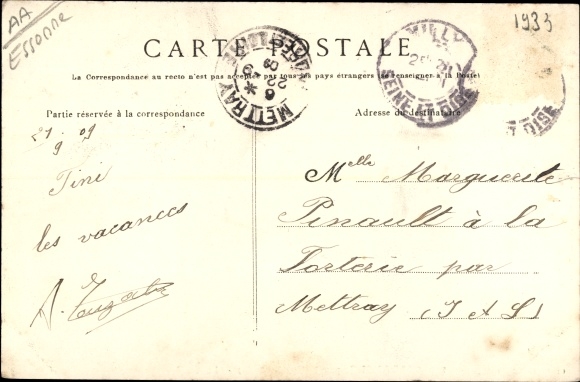 AA
Essonne
1933
CARTE POSTALE
La Correspondance au recto n'est pas acceptée par tous les pays étrangers (Se renseigner à la Poste)
Partie réservée à la correspondance
Adresse du destinataire
METTRAY
MILLY
SEINE-ET-OISE
ET OISE
21 9 09
Fini
les vacances
A.
Melle Marguerite
Pinault à la
Torterie par
Mettray (I & L)